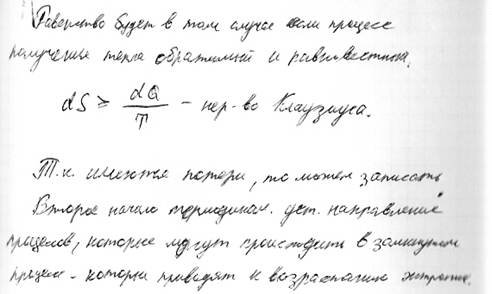 Равенство будет в том случае если процесс
получения тепла обратимый и равновестный.
dS ≥ dQ/T – нер-во Клаузиуса.
Т.к. имеются потери, то можем записать
Второе начало термодинам. уст. направление
процессов, которые могут происходить в замкнутом
процессе - которые приводят к возрастанию энтропии.